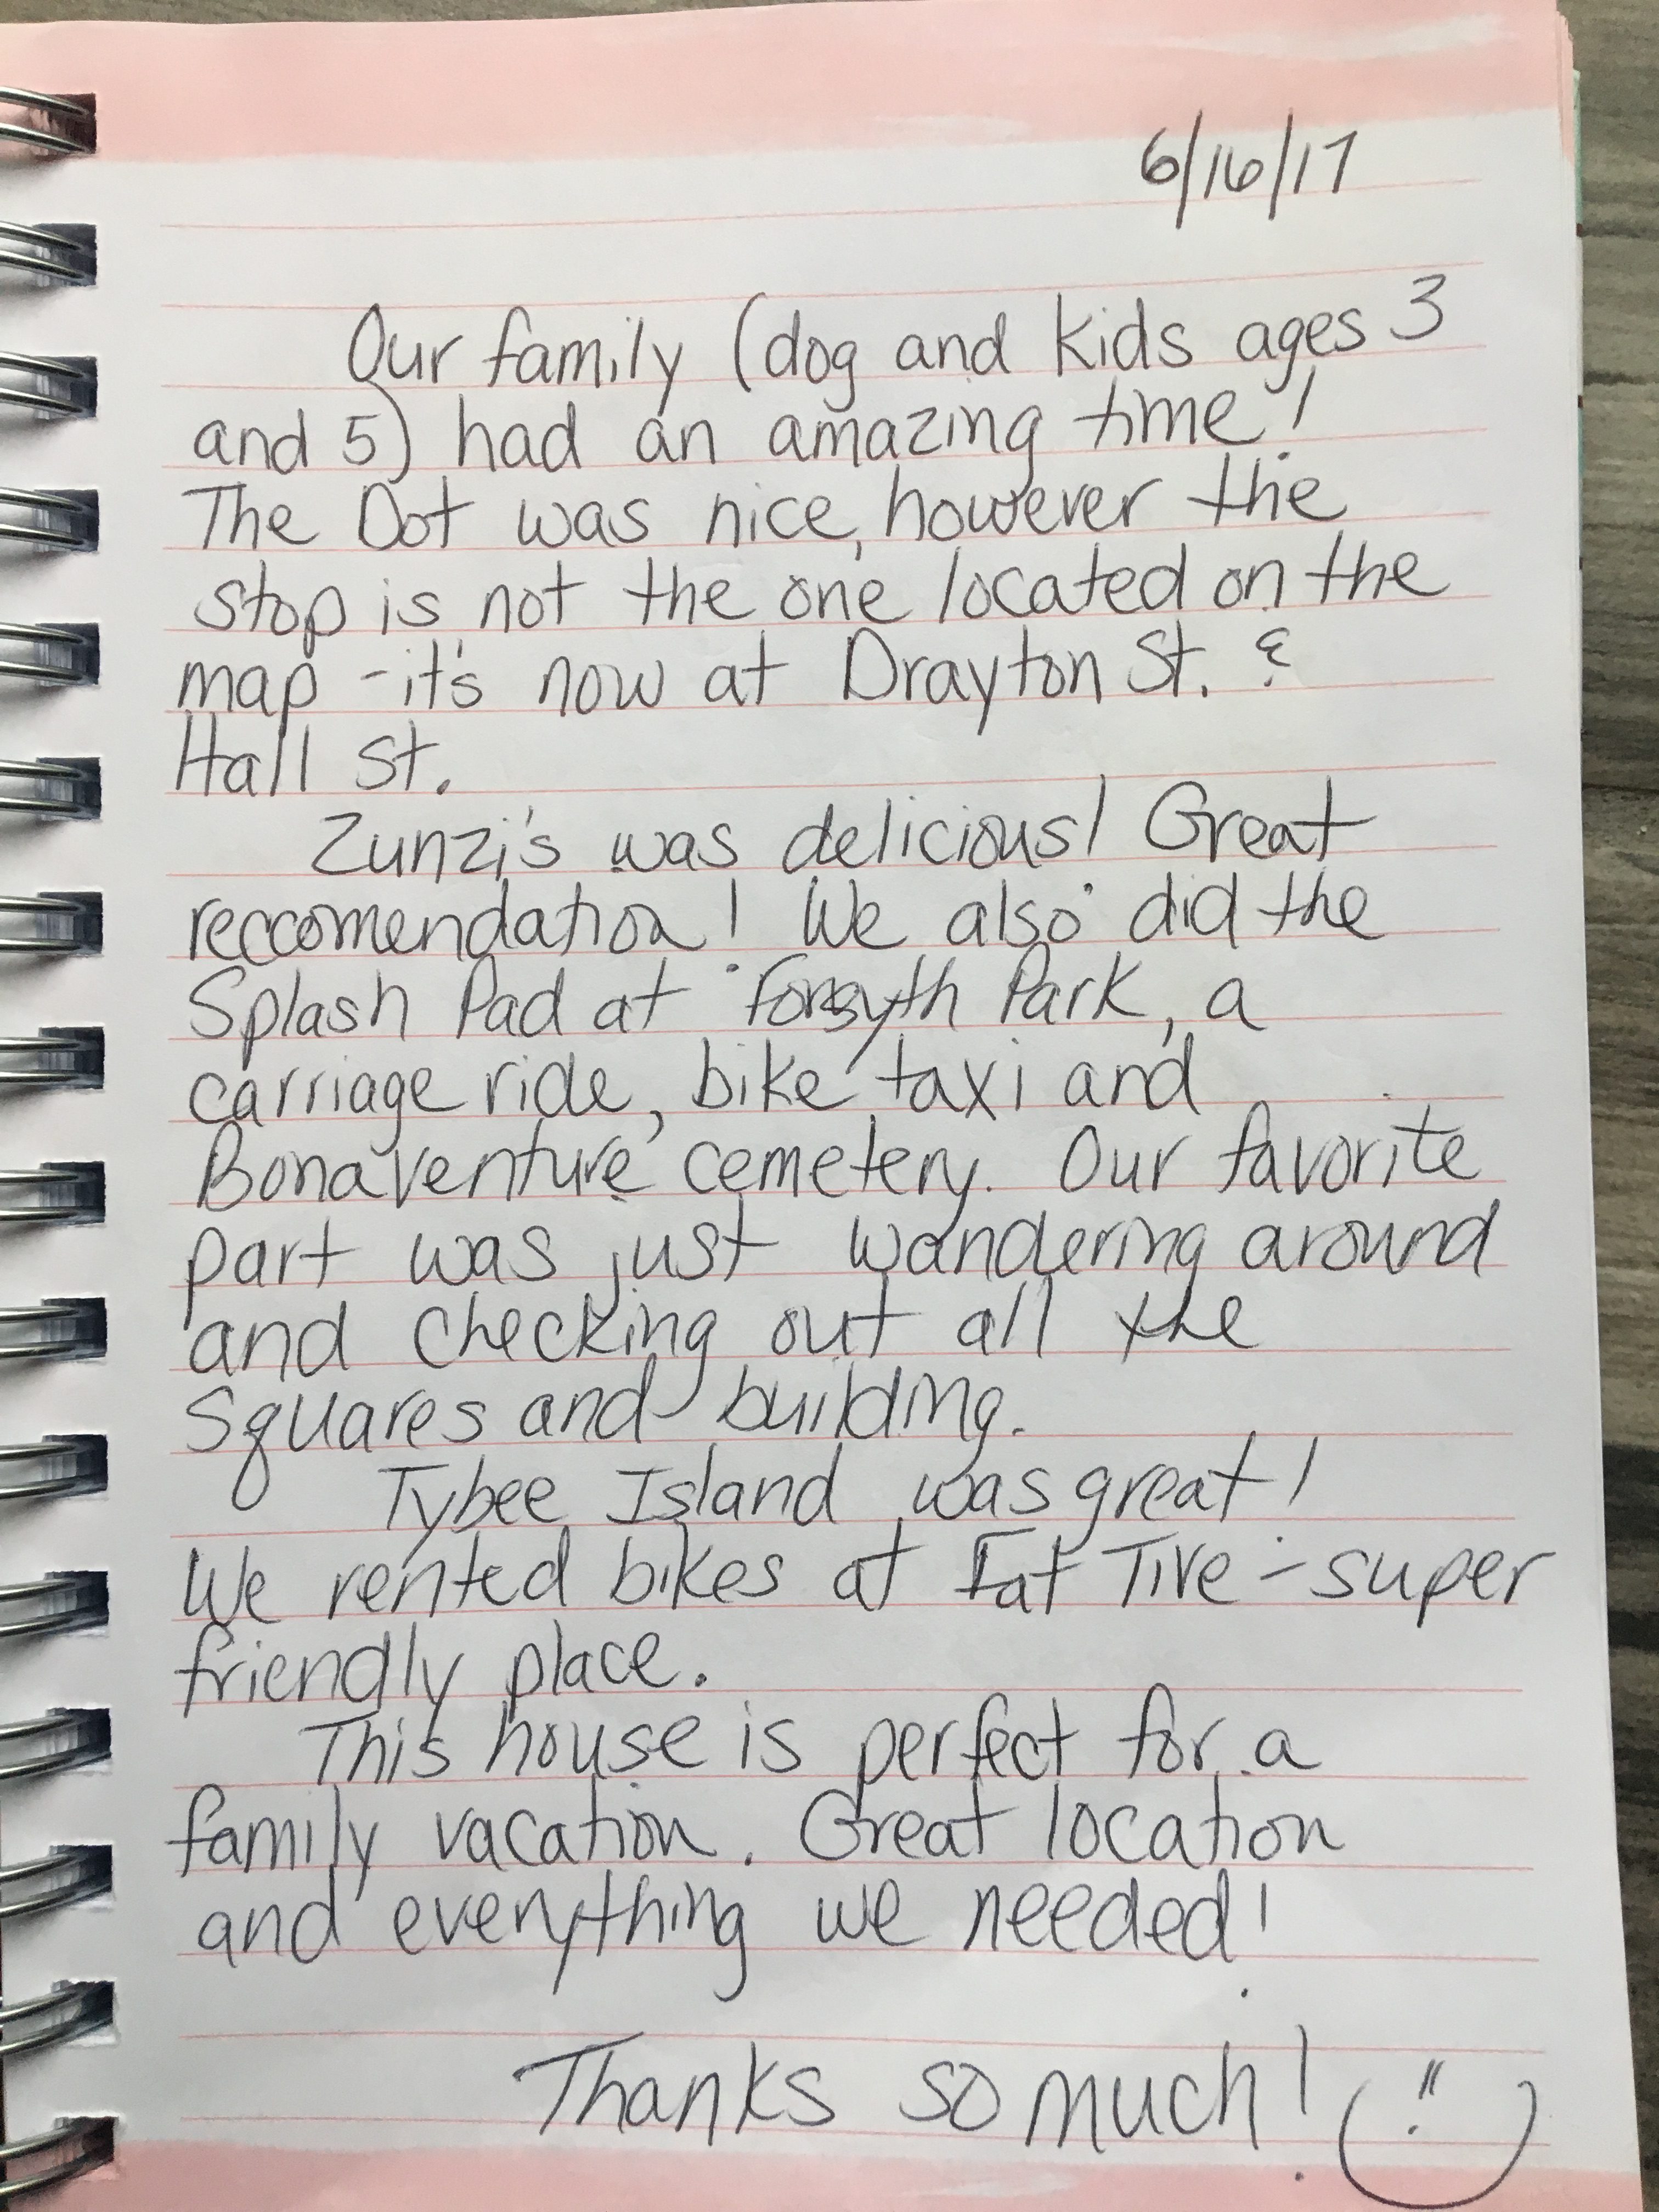 6/16/17
Our family (dog and kids ages 3
and 5) had an amazing time!
The Dot was nice, however the
stop is not the one located on the
map - it's now at Drayton St. &
Hall St.
Zunzi's was delicious! Great
reccomendation! We also did the
Splash Pad at Forsyth Park, a
carriage ride, bike taxi and
Bonaventure cemetery. Our favorite
part was just wandering around
and checking out all the
Squares and building.
Tybee Island was great!
We rented bikes at Fat Tire - super
friendly place.
This house is perfect for a
family vacation. Great location
and everything we needed!
Thanks so much!